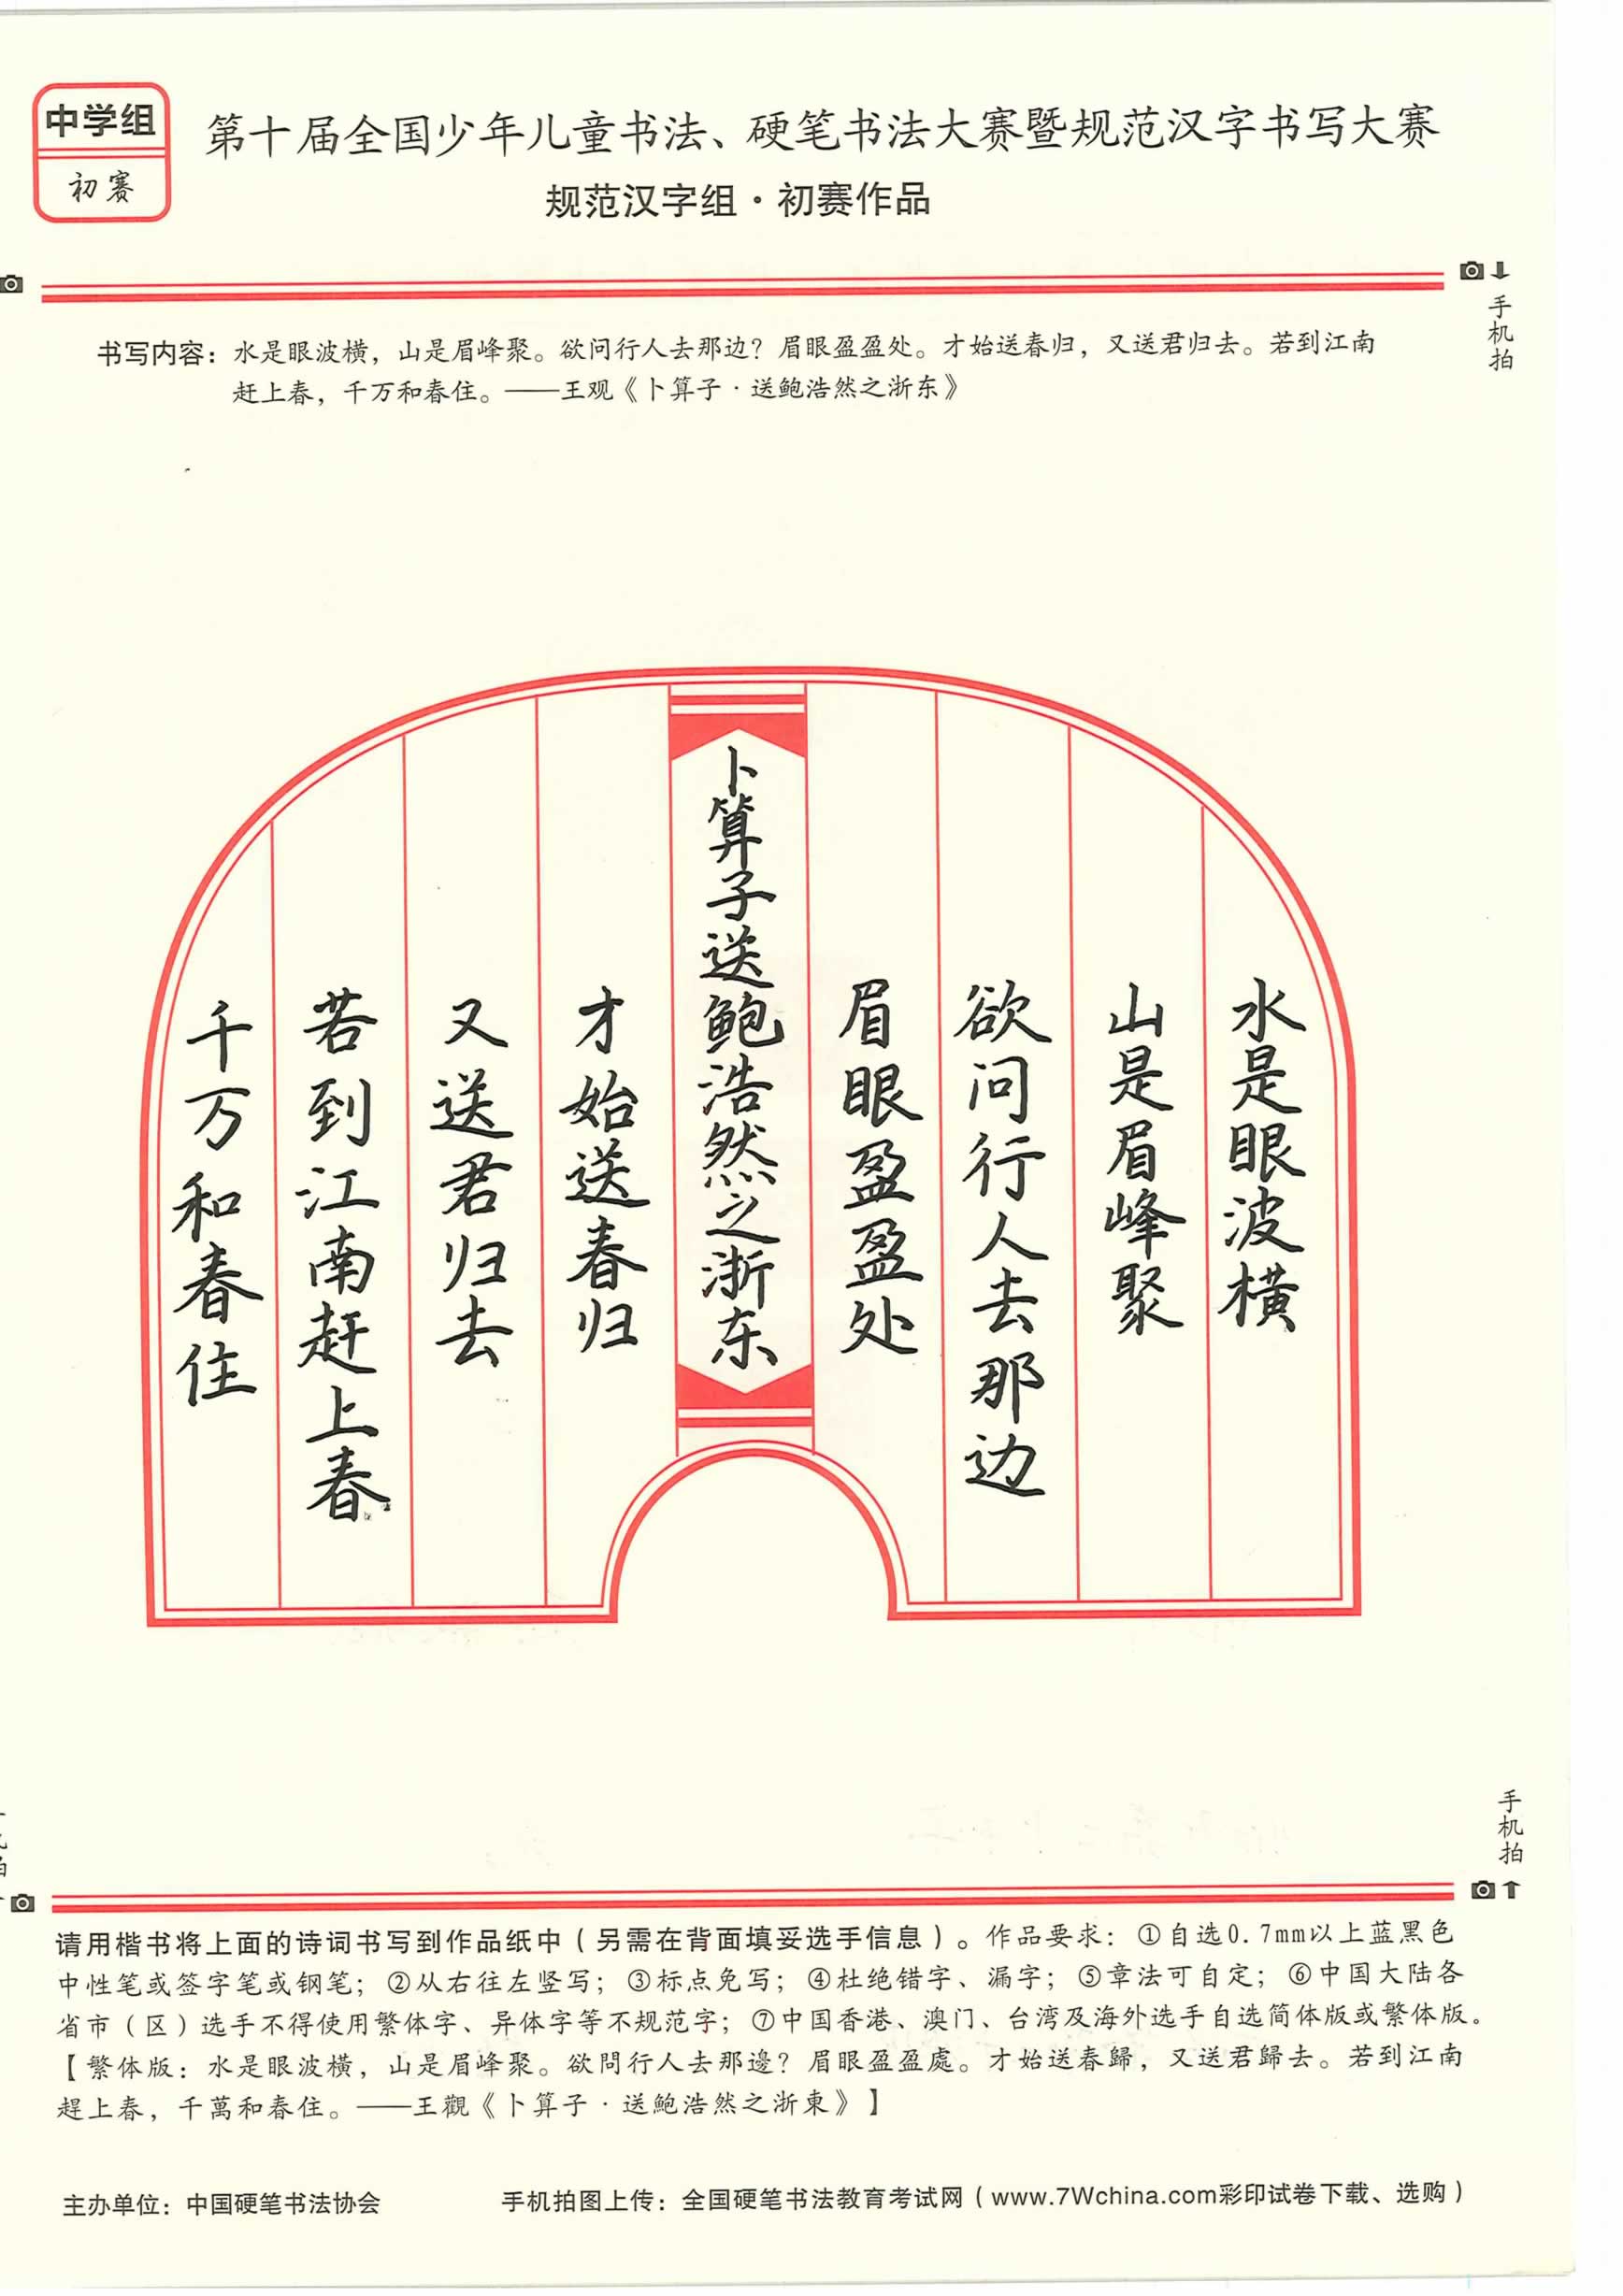 中学组
初赛
第十届全国少年儿童书法、硬笔书法大赛暨规范汉字书写大赛
规范汉字组·初赛作品
手机拍
书写内容：水是眼波横，山是眉峰聚。欲问行人去那边？眉眼盈盈处。才始送春归，又送君归去。若到江南
赶上春，千万和春住。——王观《卜算子·送鲍浩然之浙东》
水是眼波横
山是眉峰聚
欲问行人去那边
眉眼盈盈处
卜算子送鲍浩然之浙东
才始送春归
又送君归去
若到江南赶上春
千万和春住
手机拍
请用楷书将上面的诗词书写到作品纸中（另需在背面填妥选手信息）。作品要求：①自选0.7mm以上蓝黑色
中性笔或签字笔或钢笔；②从右往左竖写；③标点免写；④杜绝错字、漏字；⑤章法可自定；⑥中国大陆各
省市（区）选手不得使用繁体字、异体字等不规范字；⑦中国香港、澳门、台湾及海外选手自选简体版或繁体版。
【繁体版：水是眼波橫，山是眉峰聚。欲問行人去那邊？眉眼盈盈處。才始送春歸，又送君歸去。若到江南
趕上春，千萬和春住。——王觀《卜算子·送鮑浩然之浙東》】
主办单位：中国硬笔书法协会
手机拍图上传：全国硬笔书法教育考试网（www.7Wchina.com彩印试卷下载、选购）